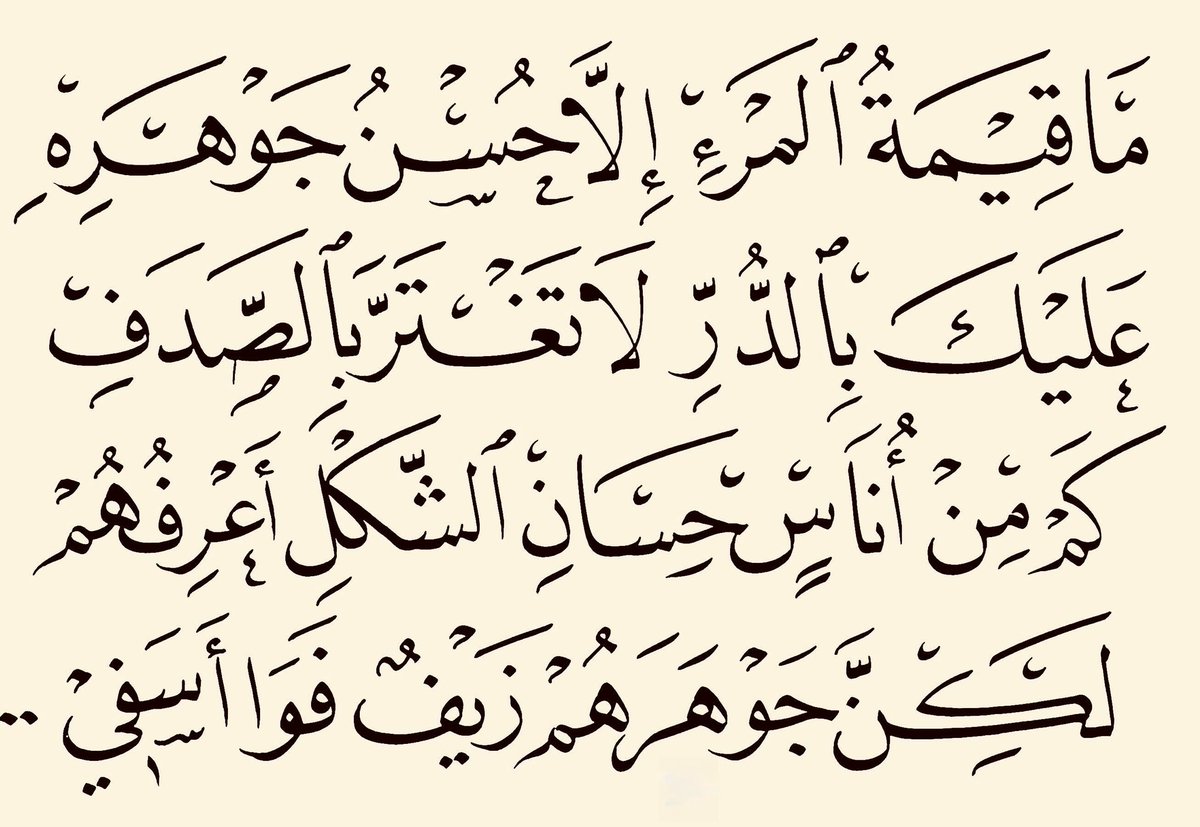 مَا قِيْمَةُ ٱلمَرْءِ إِلَّا حُسْنُ جَوْهَرِهِ
عَلَيْكَ بِٱلدُّرِّ لَا تَغْتَرَّ بِٱلصَّدَفِ
كَمْ مِنْ أُنَاسٍ حِسَانِ ٱلشَّكْلِ أَعْرِفُهُمْ
لَكِنَّ جَوْهَرَهُمْ زَيْفٌ فَوَا أَسَفِيْ ..